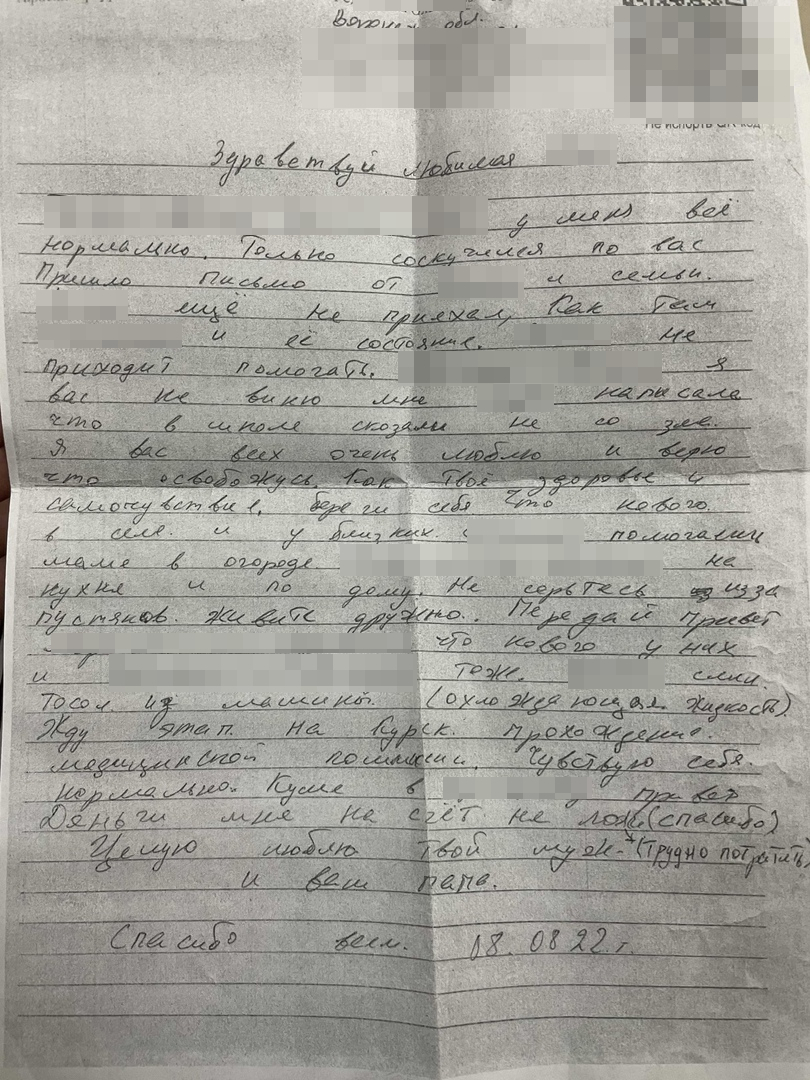 обл.
Не испорть QR-код
Здравствуй любимая
у меня всё
нормально. Только соскучился по вас
Пришло письмо от и семьи.
ещё не приехал, Как там
и её состояние. не
приходит помогать. я
вас не виню мне написала
что в школе сказали не со зла.
Я вас всех очень люблю и верю
что освобожусь. Как Твоё здоровье и
самочувствие, береги себя что нового.
в селе. и у близких. помогали
маме в огороде на
кухне и по дому. Не серьтесь из за
пустяков. живите дружно. Передай привет
что нового у них
и тоже. слил.
тосол из машины. (охлождающая жидкость).
Жду этап на Курск. прохождение.
медицинской коммисии. Чувствую себя.
нормально. Куме в привет
Деньги мне на счёт не ложи (спасибо)
Целую люблю твой муж. (трудно потратить)
и ваш папа.
Спасибо всем. 08.08 22.г.